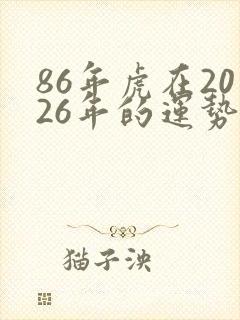 86年虎在20
26年的運勢
猫子泱